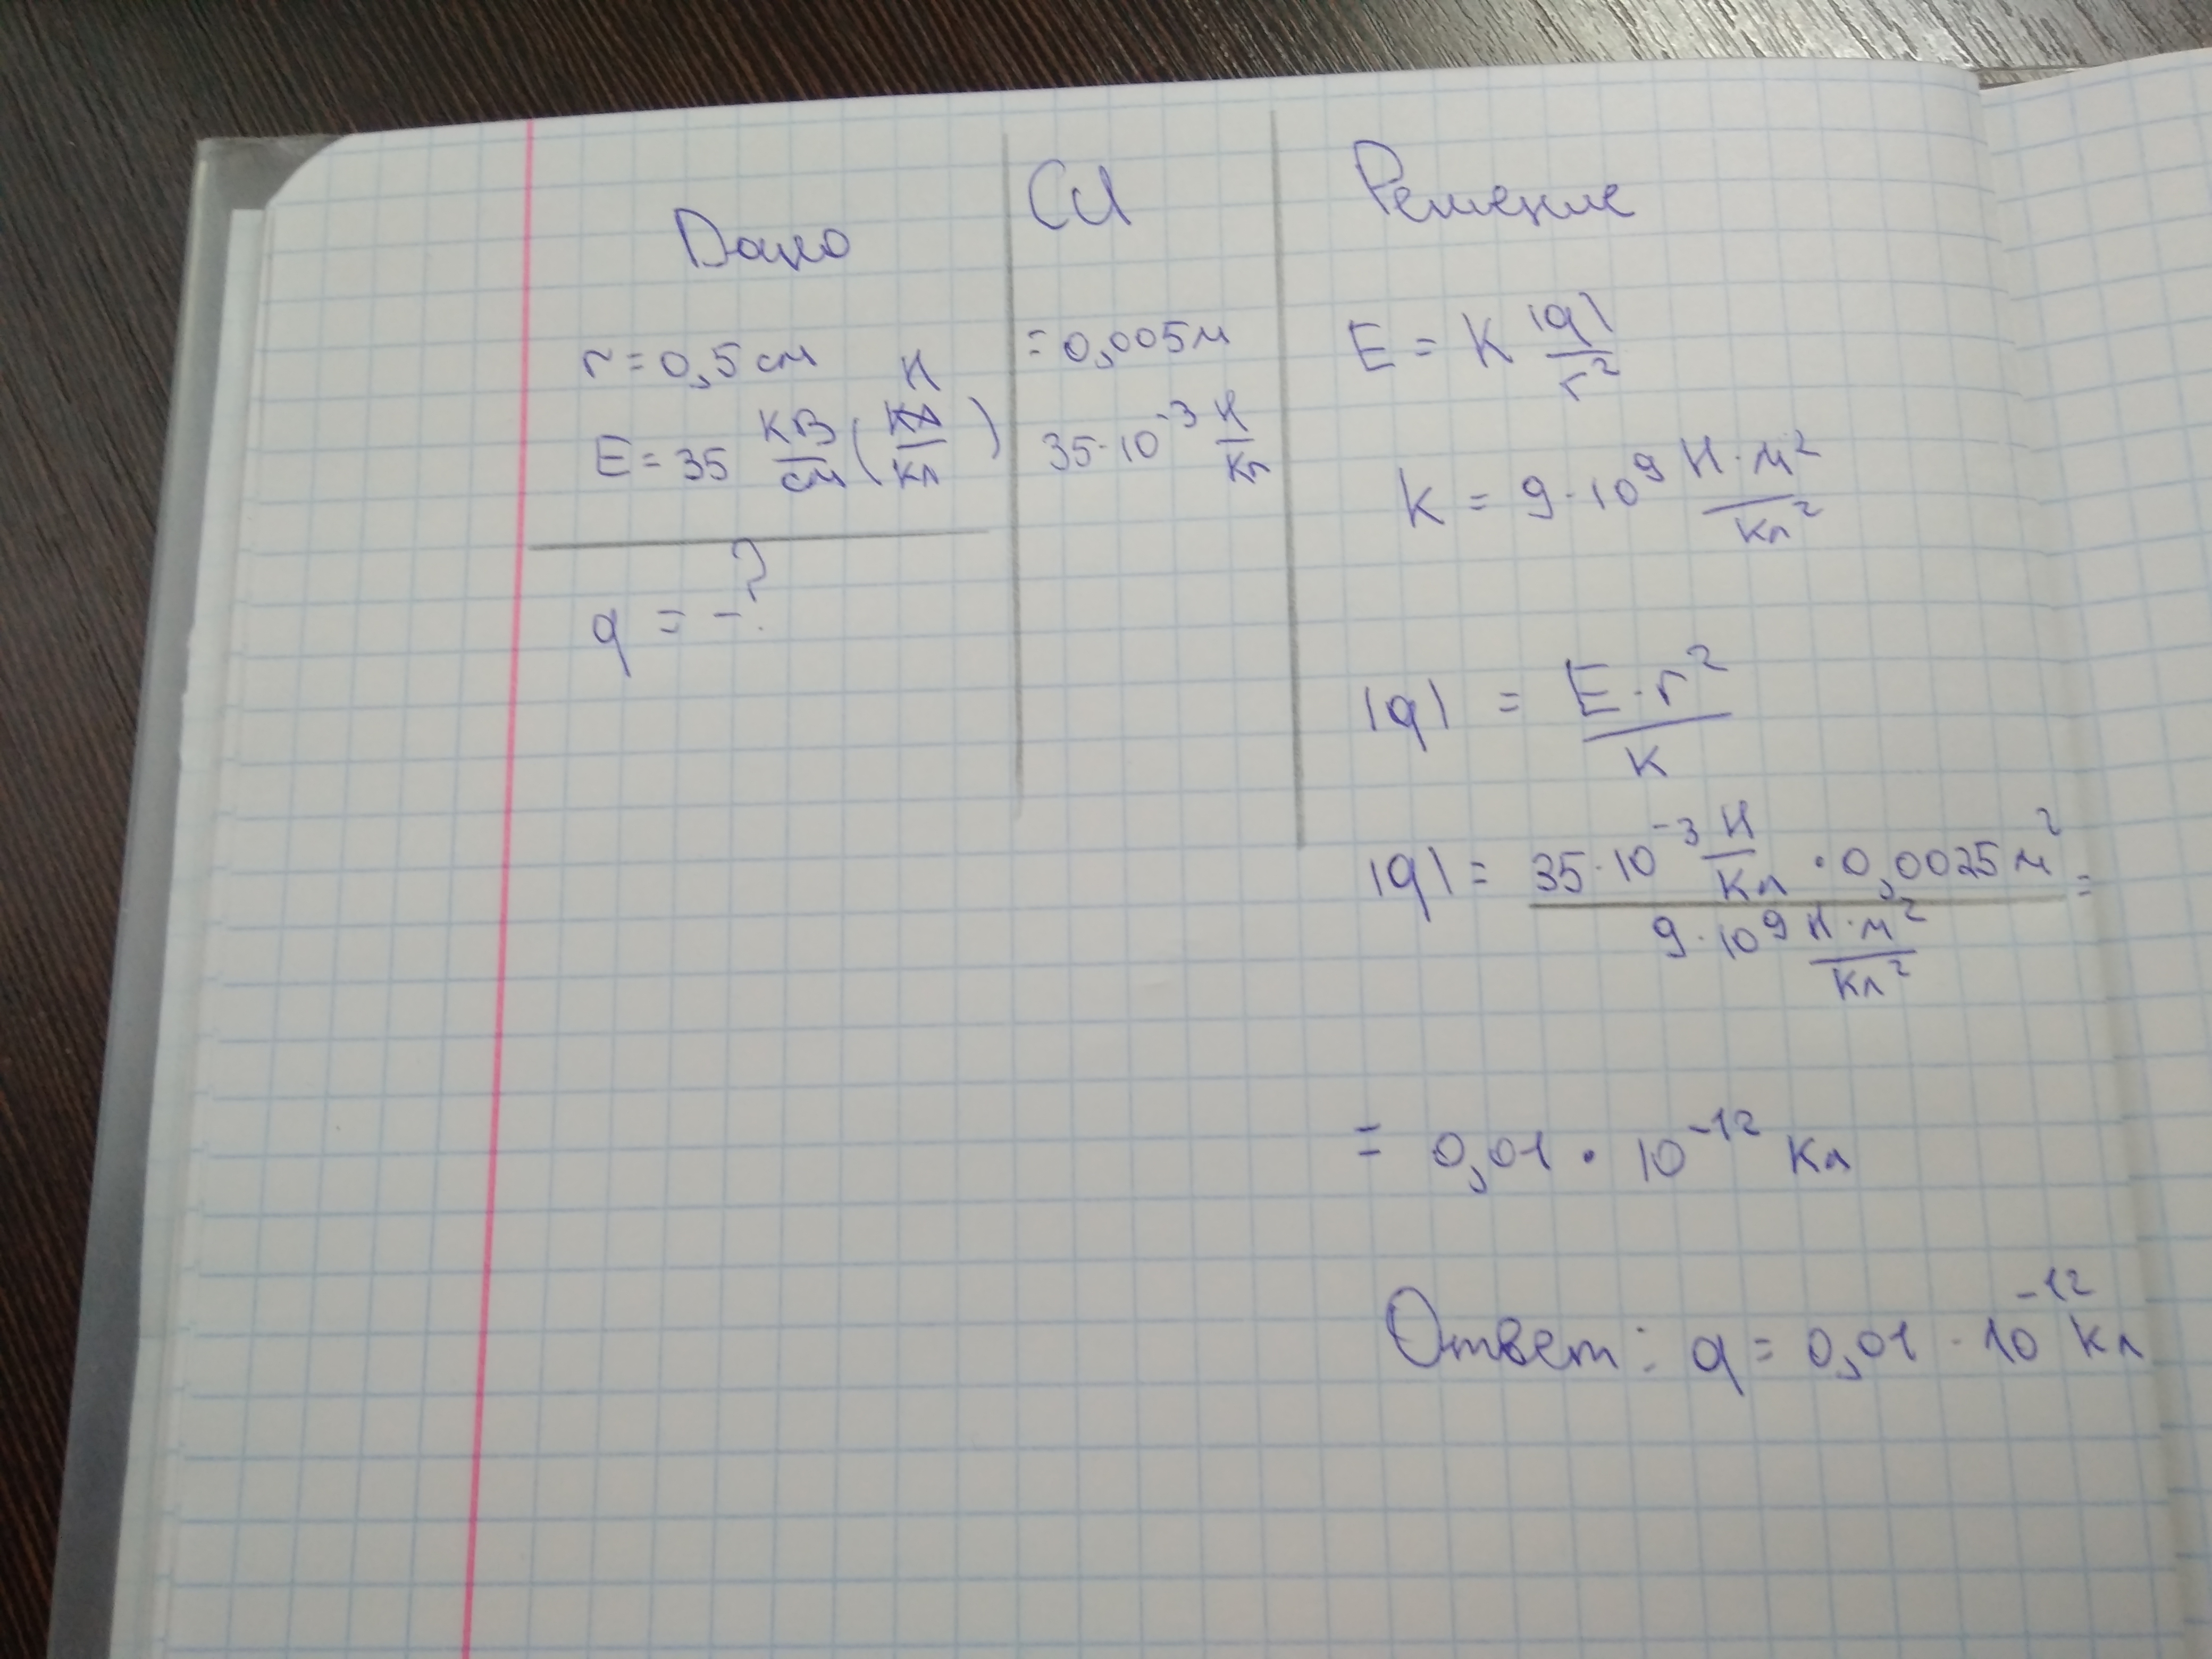 Дано
r = 0,5 см
E = 35 кВ/см (Н/Кл)
q = -?
СИ
= 0,005 м
35·10⁻³ Н/Кл
Решение
E = K |q|/r²
K = 9·10⁹ Н·м²/Кл²
|q| = E·r²/K
|q| = 35·10⁻³ Н/Кл · 0,0025 м² / 9·10⁹ Н·м²/Кл² =
= 0,01 · 10⁻¹² Кл
Ответ: q = 0,01 · 10⁻¹² Кл